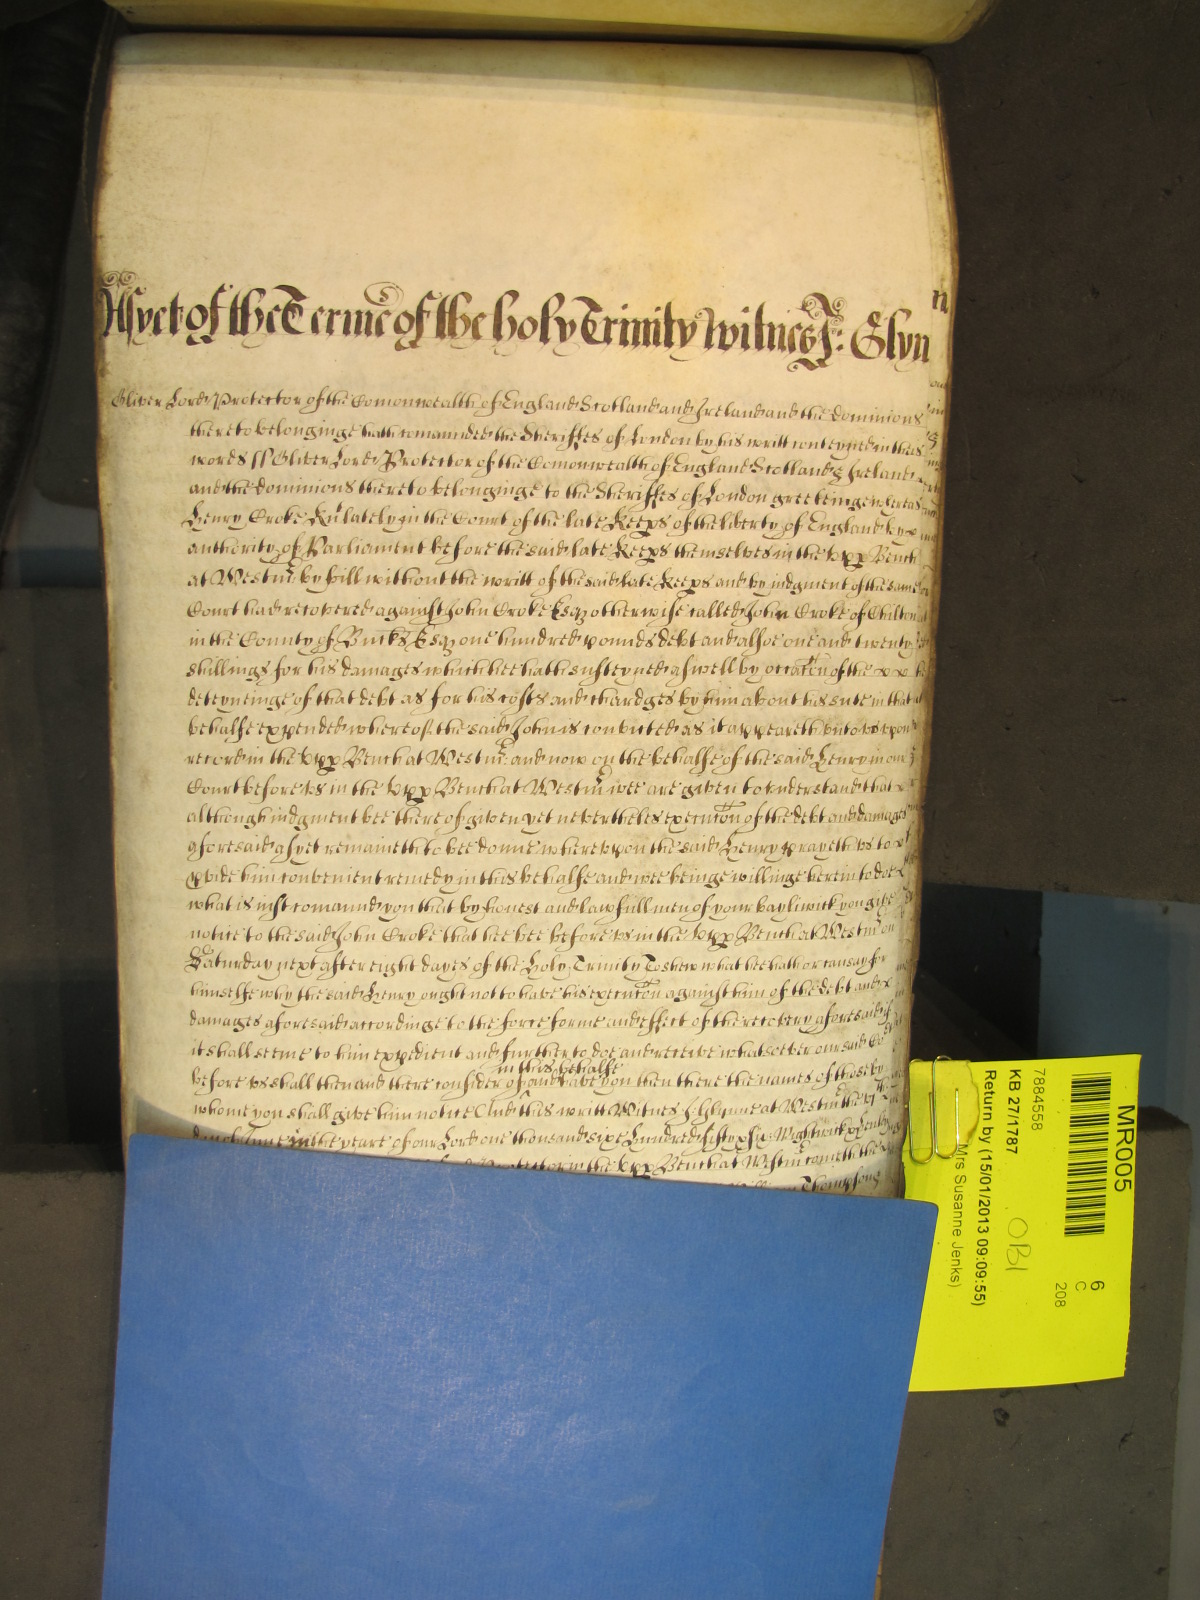 As yet of the Terme of the holy Trinity Witnes J: Glyn
Oliver Lord Protector of the Comonwealth of England Scotland and Ireland and the dominions
thereto belonginge hath comaunded the Sheriffes of London by his writt conteyned in theis
words ss Oliver Lord Protector of the Comonwealth of England Scotland & Ireland
and the dominions thereto belonginge to the Sheriffes of London greeting whereas
Henry Croke Kt lately in the Court of the late Keeps of the liberty of England by x
authority of Parliament before the said late Keeps themselves in the Upp Bench
at Westm by bill without the writt of the said late Keeps and by judgment of the same
Court had recovered against John Croke Esq otherwise called John Croke of Chilton
in the County of Bucks Esq one hundred pounds debt and alsoe one and twenty
shillings for his damages which hee hath susteyned aswell by occacon of the x x
deteyneinge of that debt as for his costs and chardges by him about his sute in that
behalfe expended whereof the said John is convicted as it appeareth unto us upon
record in the Upp Bench at Westm and now on the behalfe of the said Henry in our
Court before us in the Upp Bench at Westm wee are given to understand that x
although judgment bee thereof given yet nevertheles execucon of the debt and damages
aforesaid as yet remaineth to bee donne whereupon the said Henry prayeth us to x
pvide him convenient remedy in this behalfe and wee beinge willinge herein to doe
what is just comaund you that by honest and lawfull men of your bayliwick you give
notice to the said John Croke that hee bee before us in the Upp Bench at Westm on
Saturday next after eight dayes of the Holy Trinity To shew what hee hath or can say for
himselfe why the said Henry ought not to have his execucon against him of the debt and x
damages aforesaid accordinge to the force forme and effect of the recovery aforesaid if
it shall seeme to him expedient and further to doe and receive whatsoever our said Co
in this behalfe
before us shall then and there consider of and have you then there the names of those by
whome you shall give him notice And this writt Witnes J Glynne at Westm the
day of June in the yeare of our Lord one thousand sixe hundred fifty & six Wightwick
Protector in the Upp Bench at Westm cometh the
William Thompson
MR005
6
C
208
7884558
KB 27/1787
OBI
Return by (15/01/2013 09:09:55)
Mrs Susanne Jenks)